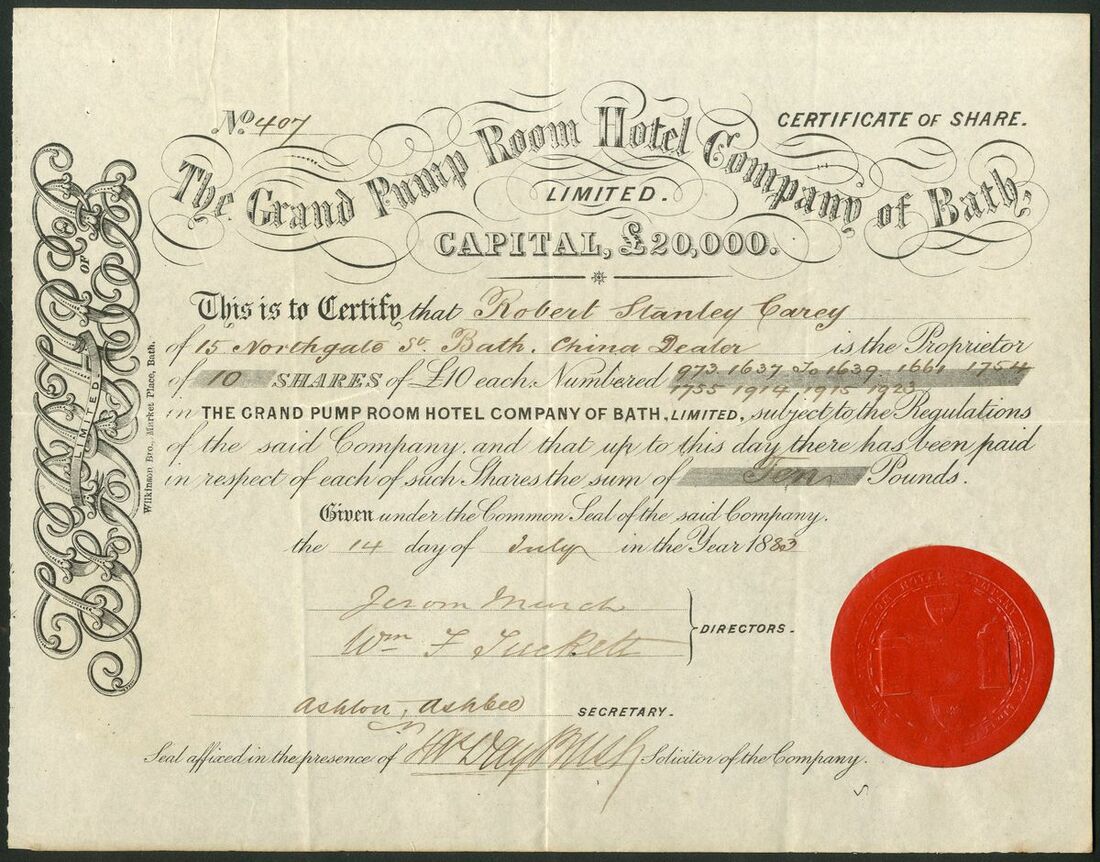 No. 407
CERTIFICATE OF SHARE.
The Grand Pump Room Hotel Company of Bath,
LIMITED.
CAPITAL, £20,000.
This is to Certify that Robert Stanley Carey
of 15 Northgate St Bath. China Dealer is the Proprietor
of 10 SHARES of £10 each, Numbered 973. 1637 to 1639. 1661. 1754
1755 1914 1915 1923
in THE GRAND PUMP ROOM HOTEL COMPANY OF BATH, LIMITED, subject to the Regulations
of the said Company, and that up to this day there has been paid
in respect of each of such Shares the sum of Ten Pounds.
Given under the Common Seal of the said Company.
the 14 day of July in the Year 1883
Jerom Murch
Wm F Tuckett
DIRECTORS.
Ashton, Ashbee
SECRETARY.
Seal affixed in the presence of Solicitor of the Company.
OF
LIMITED
Wilkinson Bro., Market Place, Bath.
ROOM HOTEL COMPANY